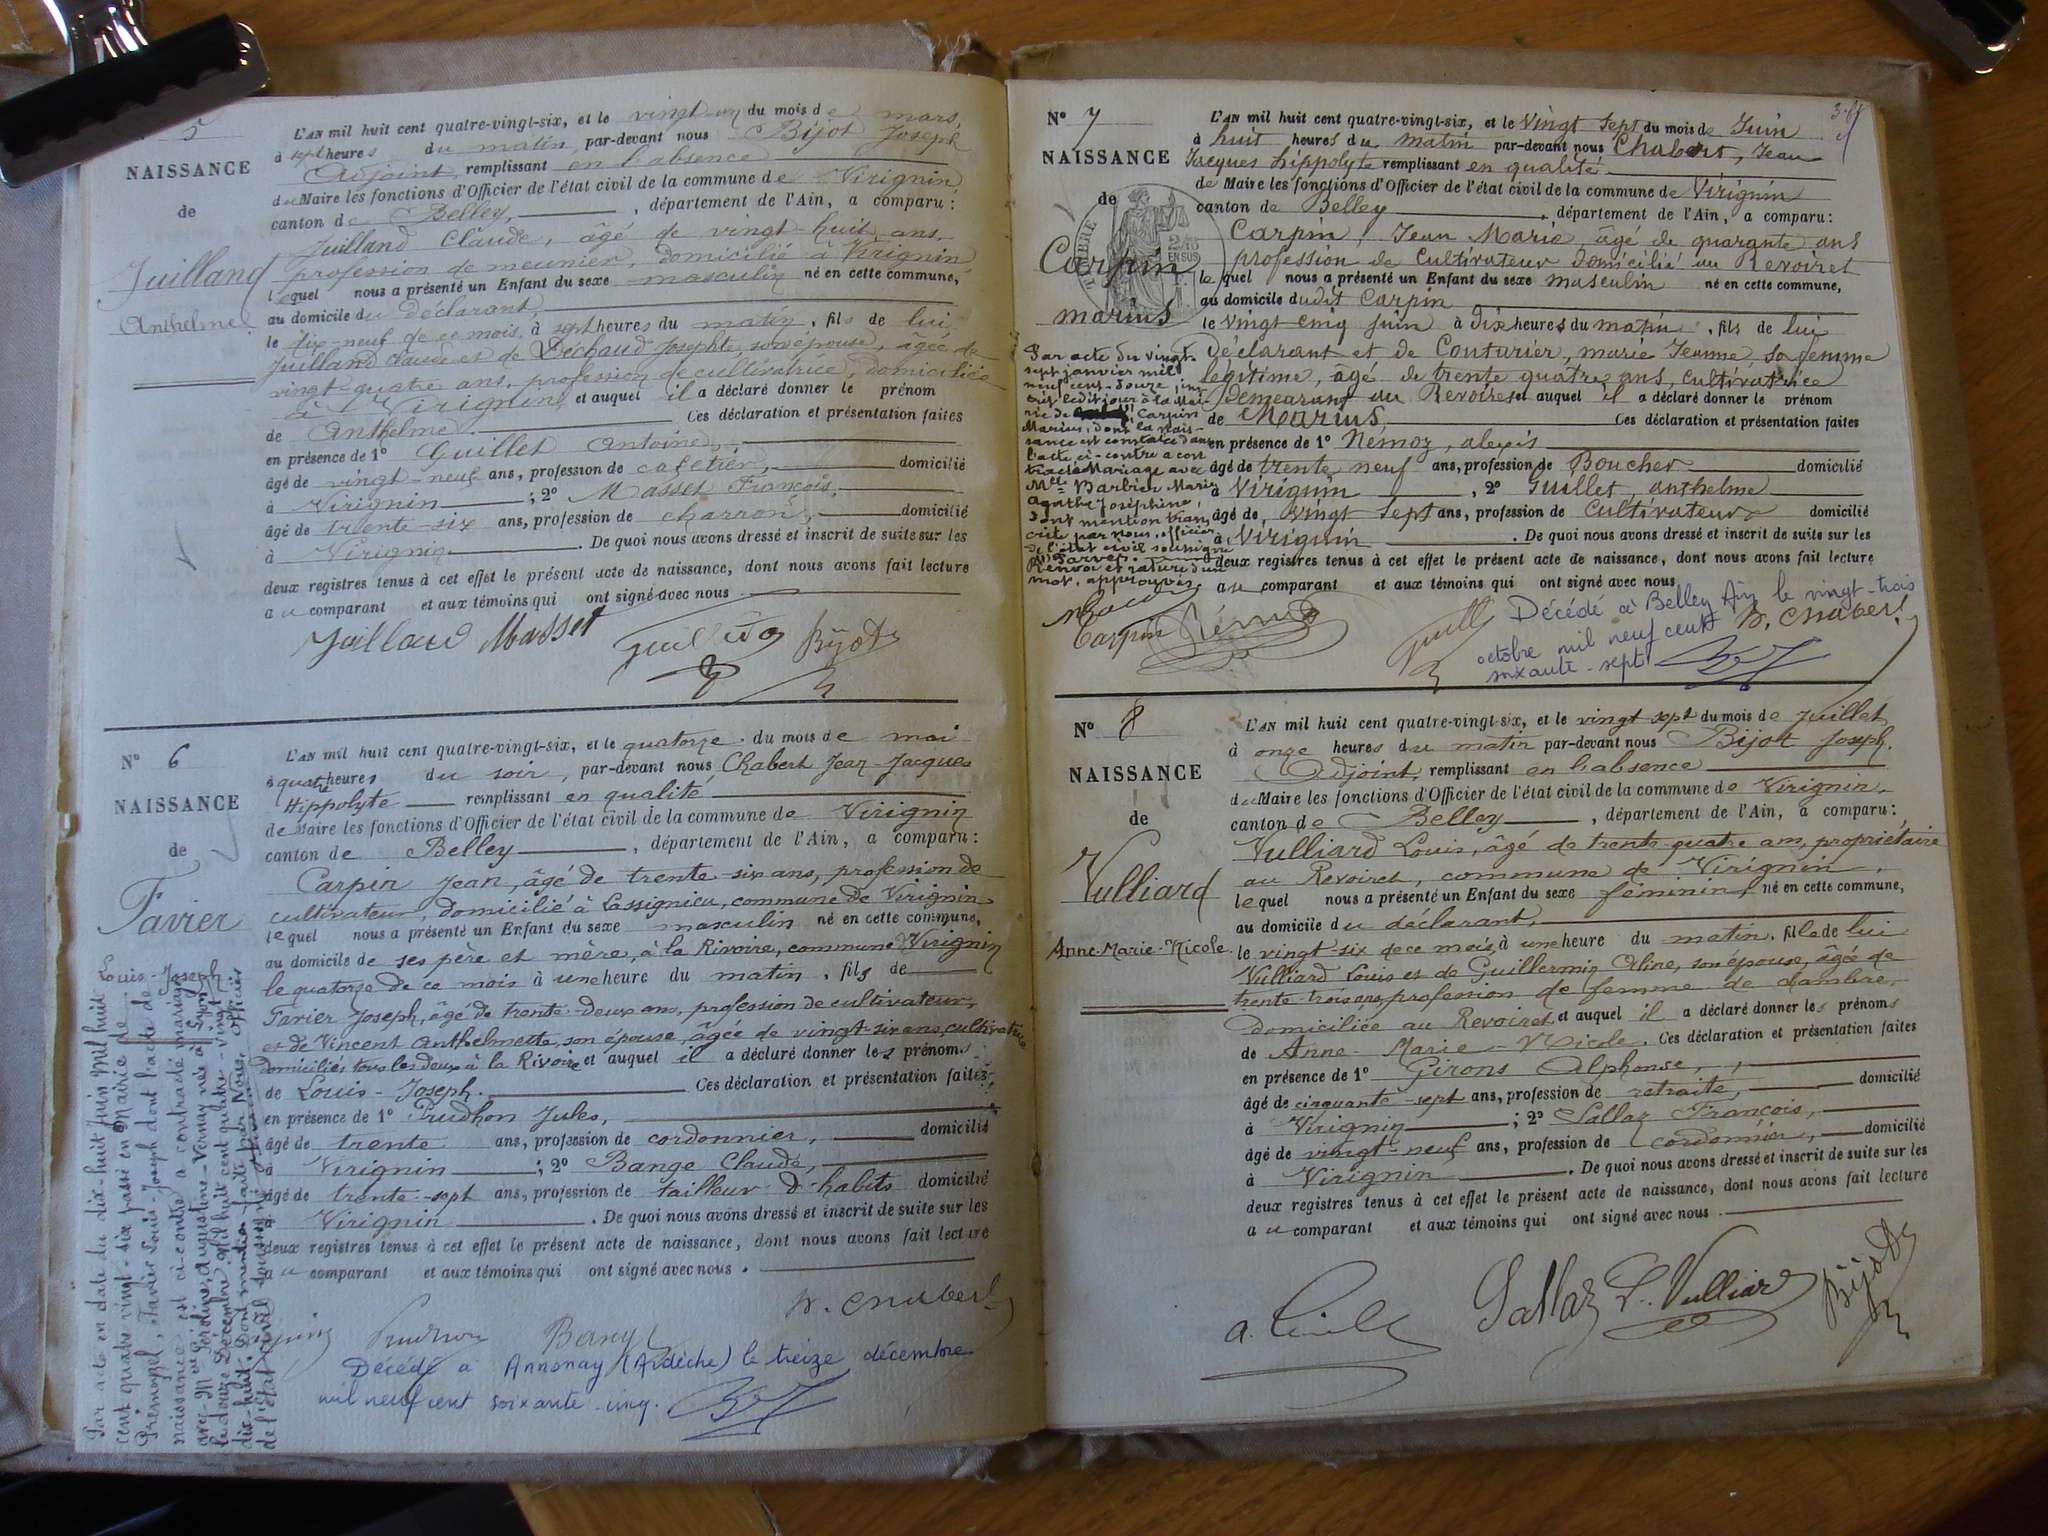 5
NAISSANCE
de
Juilland
Anthelme
L'AN mil huit cent quatre-vingt-six, et le vingt-un du mois de mars,
à sept heures du matin, par-devant nous Bijot Joseph
Adjoint, remplissant en l'absence
du Maire les fonctions d'Officier de l'état civil de la commune de Virignin
canton de Belley, département de l'Ain, a comparu :
Juilland Claude, âgé de vingt-huit ans,
profession de meunier, domicilié à Virignin
lequel nous a présenté un Enfant du sexe masculin né en cette commune,
au domicile du déclarant,
le dix-neuf de ce mois, à sept heures du matin, fils de lui
Juilland Claude et de Déchaud Josephte, son épouse, âgée de
vingt quatre ans, profession de cultivatrice, domiciliée
à Virignin et auquel il a déclaré donner le prénom
de Anthelme Ces déclaration et présentation faites
en présence de 1° Guillet Antoine,
âgé de vingt-neuf ans, profession de cafetier, domicilié
à Virignin ; 2° Masset François,
âgé de trente-six ans, profession de charron, domicilié
à Virignin . De quoi nous avons dressé et inscrit de suite sur les
deux registres tenus à cet effet le présent acte de naissance, dont nous avons fait lecture
au comparant et aux témoins qui ont signé avec nous
Juilland Masset Guillet Bijot
N° 6
NAISSANCE
de
Favier
Louis-Joseph
L'AN mil huit cent quatre-vingt-six, et le quatorze du mois de mai
à quatre heures du soir, par-devant nous Chabert Jean-Jacques
Hippolyte remplissant en qualité
de Maire les fonctions d'Officier de l'état civil de la commune de Virignin
canton de Belley , département de l'Ain, a comparu :
Carpin Jean, âgé de trente-six ans, profession de
cultivateur, domicilié à Lassignieu, commune de Virignin
lequel nous a présenté un Enfant du sexe masculin né en cette commune,
au domicile de ses père et mère, à la Rivoire, commune Virignin
le quatorze de ce mois à une heure du matin, fils de
Favier Joseph, âgé de trente-deux ans, profession de cultivateur,
et de Vincent Anthelmette, son épouse, âgée de vingt-six ans, cultivatrice
Domiciliés tous les deux à la Rivoire et auquel il a déclaré donner les prénoms
de Louis-Joseph. Ces déclaration et présentation faites
en présence de 1° Prudhon Jules,
âgé de trente ans, profession de cordonnier, domicilié
à Virignin ; 2° Bange Claude,
âgé de trente-sept ans, profession de tailleur d'habits domicilié
Virignin . De quoi nous avons dressé et inscrit de suite sur les
deux registres tenus à cet effet le présent acte de naissance, dont nous avons fait lecture
au comparant et aux témoins qui ont signé avec nous .
H. Chabert
Prudhon Bange
Décédé à Annonay (Ardèche) le treize décembre
mil neuf cent soixante-cinq.
Par acte en date du dix-huit Juin Mil huit
cent quatre vingt-six passé en Mairie de
Prémeyzel, Favier Louis Joseph dont l'acte de
naissance est ci-contre a contracté mariage
avec Melle Augustine-Vernay née à Lyon
le douze Décembre Mil huit cent quatre-vingt
dix-huit. Dont mention faite par Nous, officier
de l'état civil soussigné
N° 7
NAISSANCE
de
Carpin
marius
TIMBRE
L'AN mil huit cent quatre-vingt-six, et le Vingt Sept du mois de Juin
à huit heures du matin par-devant nous Chabert, Jean
Jacques hippolyte remplissant en qualité
de Maire les fonctions d'Officier de l'état civil de la commune de Virignin
canton de Belley , département de l'Ain, a comparu :
Carpin, Jean Marie, âgé de quarante ans
profession de Cultivateur domicilié au Revoiret
lequel nous a présenté un Enfant du sexe masculin né en cette commune,
au domicile dudit Carpin
le Vingt Cinq Juin à Dix heures du matin, fils de lui
Déclarant et de Couturier, marie Jeanne, sa femme
légitime, âgé de trente quatre ans, cultivatrice
Demeurant au Revoiret et auquel il a déclaré donner le prénom
de Marius, Ces déclaration et présentation faites
en présence de 1° Nemoz, alexis
âgé de trente neuf ans, profession de Boucher domicilié
à Virignin , 2° Guillet, anthelme
âgé de, vingt Sept ans, profession de Cultivateur domicilié
à Virignin . De quoi nous avons dressé et inscrit de suite sur les
deux registres tenus à cet effet le présent acte de naissance, dont nous avons fait lecture
au comparant et aux témoins qui ont signé avec nous
Par acte du vingt-
sept janvier mil
neuf cent-douze, ins-
crit ledit jour à la Mai-
rie de Carpin
Marius, dont la nais-
sance est constatée dans
l'acte ci-contre a cont
tracté Mariage avec
Melle Barbier Marie
Agathe Joséphine,
Dont mention trans
crite par nous, officier
de l'état civil soussigné
Renvoi et rature d'un
mot, approuvés
Carpin Némoz Guillet H. Chabert
Décédé à Belley Ain le vingt-trois
octobre mil neuf cent
soixante-sept
N° 8
NAISSANCE
de
Vulliard
Anne-Marie-Nicole
L'AN mil huit cent quatre-vingt-six, et le vingt sept du mois de Juillet
à onze heures du matin par-devant nous Bijot Joseph.
Adjoint, remplissant en l'absence
du Maire les fonctions d'Officier de l'état civil de la commune de Virignin,
canton de Belley , département de l'Ain, a comparu :
Vulliard Louis, âgé de trente-quatre ans, propriétaire
au Revoiret, commune de Virignin,
lequel nous a présenté un Enfant du sexe féminin, né en cette commune,
au domicile du déclarant,
le vingt-six de ce mois, à une heure du matin, fille de lui
Vulliard Louis et de Guillermin Orline, son épouse, âgée de
trente-trois ans, profession de femme de chambre,
domiciliée au Revoiret et auquel il a déclaré donner les prénoms
de Anne-Marie-Nicole. Ces déclaration et présentation faites
en présence de 1° Girons Alphonse,
âgé de cinquante-sept ans, profession de retraité, domicilié
à Virignin ; 2° Sallaz François,
âgé de vingt-neuf ans, profession de cordonnier, domicilié
à Virignin . De quoi nous avons dressé et inscrit de suite sur les
deux registres tenus à cet effet le présent acte de naissance, dont nous avons fait lecture
au comparant et aux témoins qui ont signé avec nous
Sallaz L. Vulliard Bijot